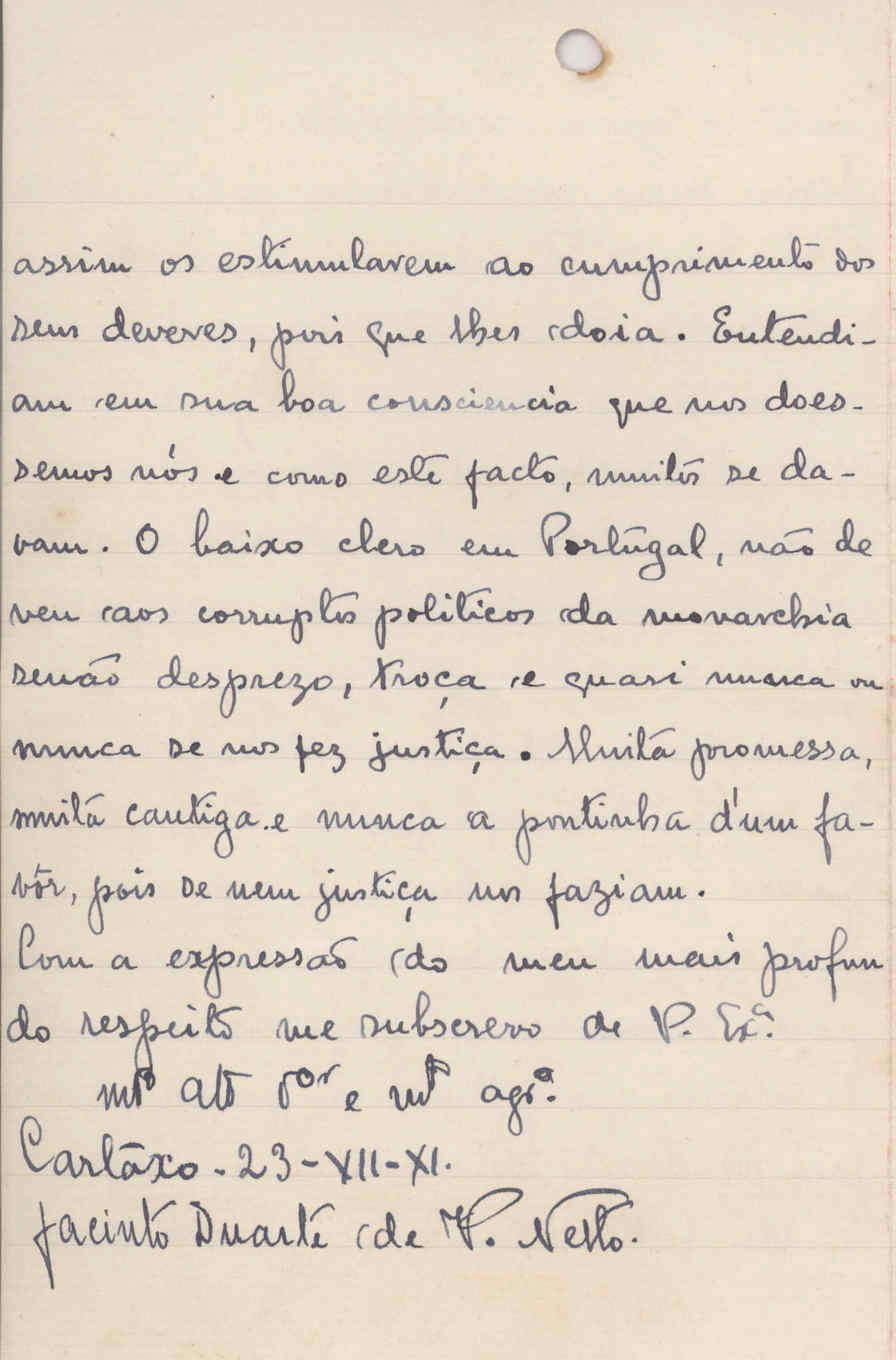 assim os estimularem ao cumprimento dos
seus deveres, pois que lhes doia. Entendi-
am em sua boa consciencia que nos does-
semos nós e como este facto, muitos se da-
vam. O baixo clero em Portugal, não de
veu aos corruptos politicos da monarchia
senão desprezo, troça e quasi nunca ou
nunca se nos fez justiça. Muita promessa,
muita cantiga e nunca a pontinha d'um fa-
vôr, pois se nem justiça nos faziam.
Com a expressão do meu mais profun
do respeito me subscrevo de V. Exª.
mtº attº vºr e mtº agrº.
Cartaxo - 23-XII-XI.
Jacinto Duarte de V. Netto.